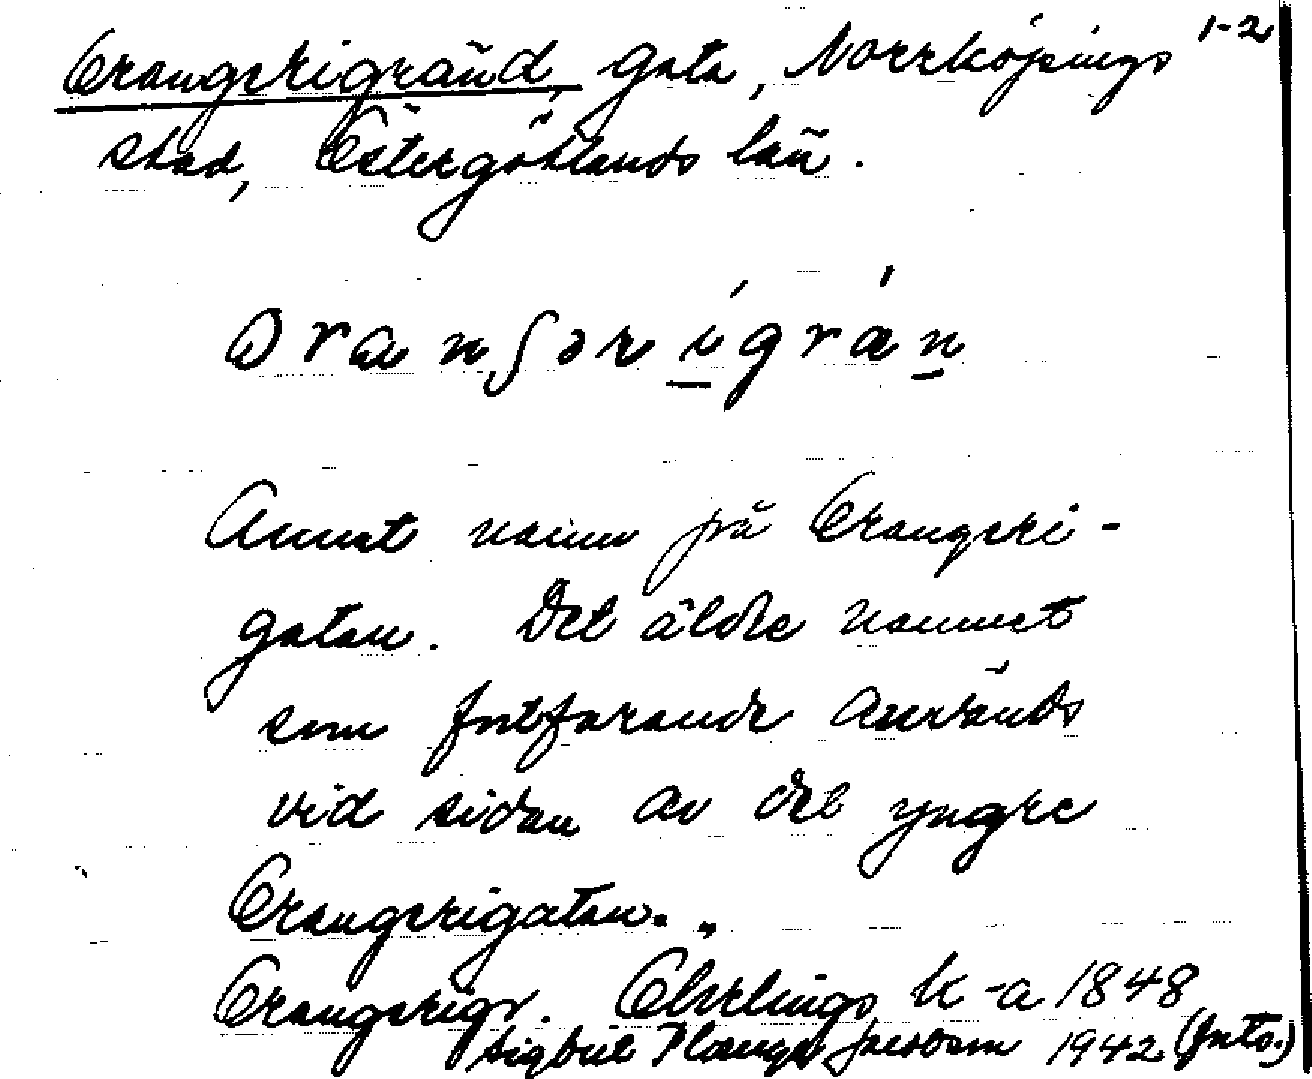 1-2
Orangerigränd, gata, Norrköpings
stad, Östergötlands län.
Oranʃərigrän
Annat namn på Orangeri-
gatan. Det äldre namnet
som fortfarande används
vid sidan av det yngre
Orangerigatan.
Orangerigr. Ekelings k-a 1848
Sigbrit Plænge Jacobson 1942 (foto.)